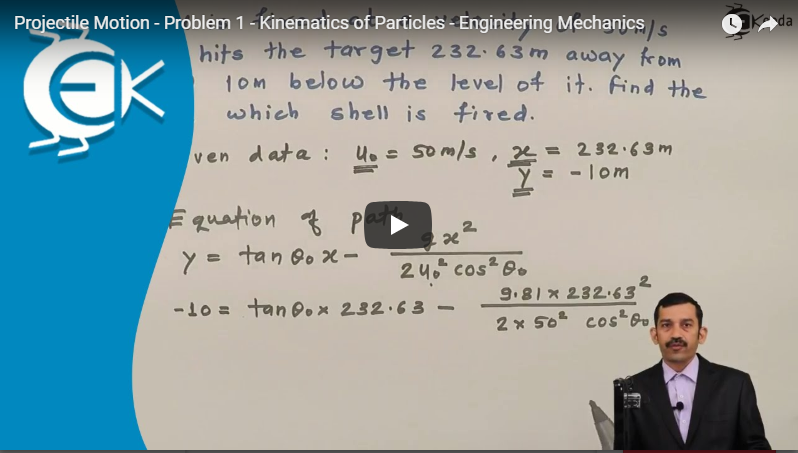 Projectile Motion - Problem 1 - Kinematics of Particles - Engineering Mechanics
hits the target 232.63m away from
10m below the level of it. find the
which shell is fired.
ven data : u₀ = 50m/s , x = 232.63m
y = -10m
Equation of path
y = tan θ₀ x - gx² / 2u₀² cos² θ₀
-10 = tan θ₀ × 232.63 - 9.81 × 232.63² / 2 × 50² cos² θ₀
EK